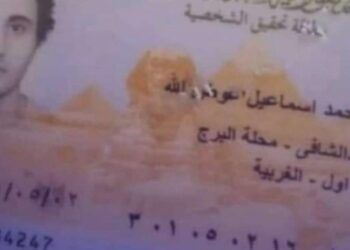 بطاقة تحقيق الشخصية
حمد اسماعيل عوض الله
الشافى - محلة البرج
اول - الغربية
/٠٥/٠٢
٣ ٠١ ٠٥ ٠٢ ١٦
4247